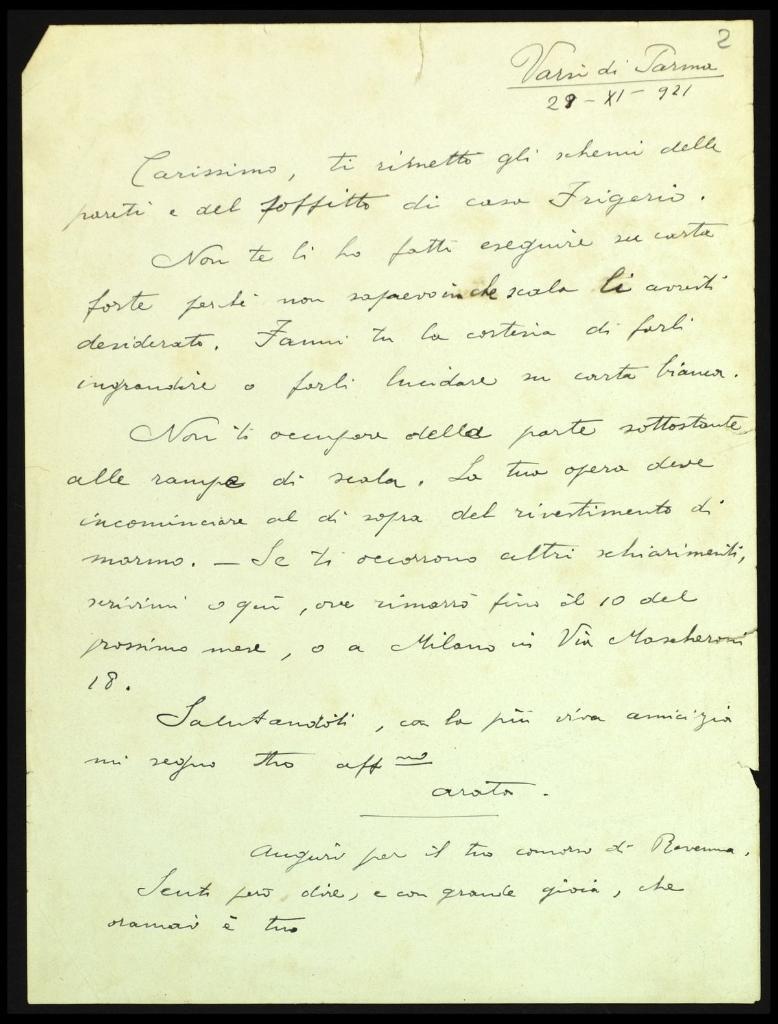 2
Varsi di Parma
29 - XI - 921
Carissimo, ti rimetto gli schemi delle
pareti e del soffitto di casa Frigerio.
Non te li ho fatti eseguire su carta
forte perchè non sapevo in che scala li avresti
desiderato. Fammi tu la cortesia di farli
ingrandire o farli lucidare su carta bianca.
Non ti occupare della parte sottostante
alle rampe di scala. La tua opera deve
incominciare al di sopra del rivestimento di
marmo. — Se ti occorrono altri schiarimenti,
scrivimi o qui, ove rimarrò fino il 10 del
prossimo mese, o a Milano in Via Mascheroni
18.
Salutandoti, con la più viva amicizia
mi segno tuo aff mo
Arata.
Auguri per il tuo concorso di Ravenna.
Sento però dire, e con grande gioia, che
oramai è tuo